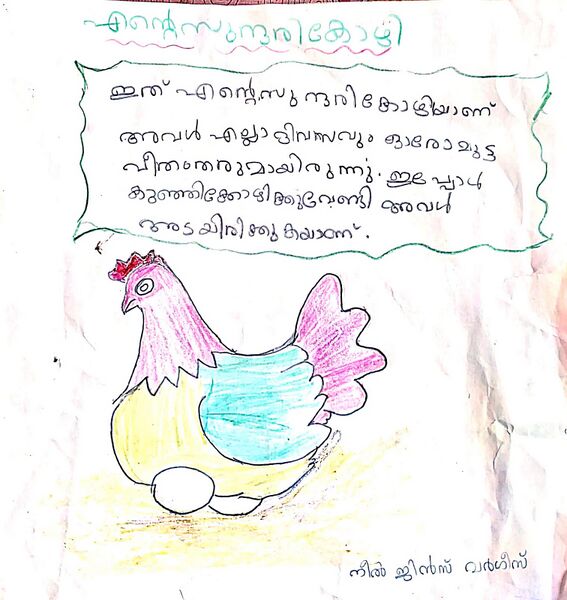 എന്റെസുന്ദരികോഴി
ഇത് എന്റെസുന്ദരികോഴിയാണ്
അവൾ എല്ലാദിവസവും ഓരോമുട്ട
വീതംതരുമായിരുന്നു. ഇപ്പോൾ
കുഞ്ഞിക്കോഴിക്കുവേണ്ടി അവൾ
അടയിരിക്കുകയാണ്.
നീൽ ജിൻസ് വർഗീസ്